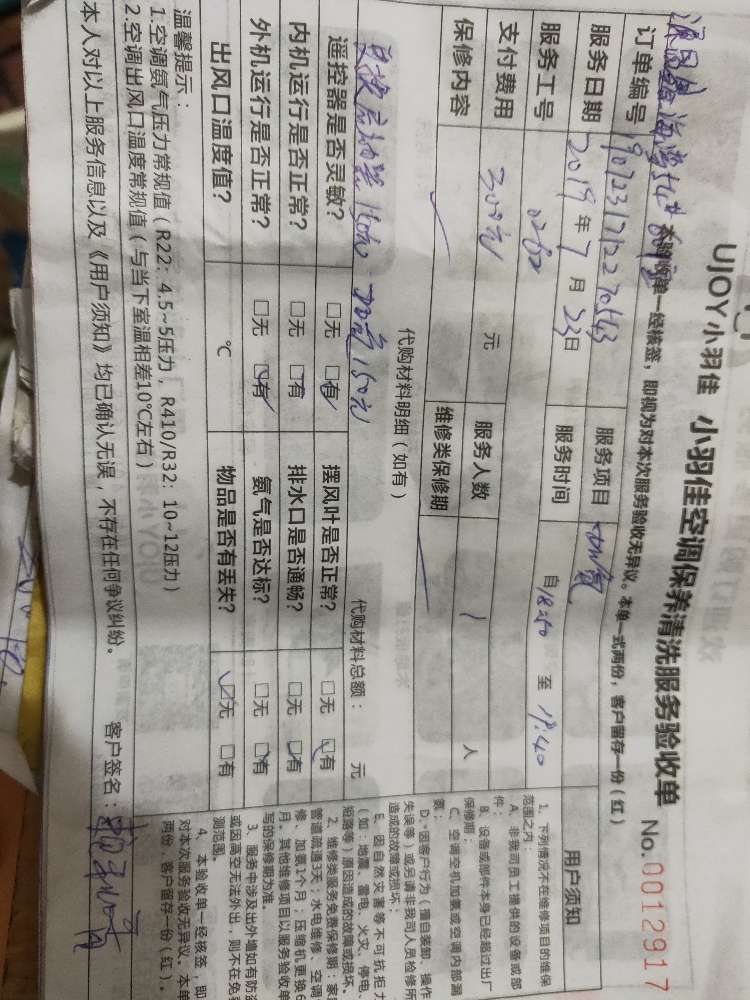 UJOY小羽佳 小羽佳空调保养清洗服务验收单 No.0012917
本验收单一经核签，即视为对本次服务验收无异议。本单一式两份，客户留存一份（红）
订单编号 服务项目 加氨
服务日期 2019年7月23日 服务时间 自18:50 至 19:40
服务工号 0262
支付费用 300元 元 服务人数 1 人
保修内容 维修类保修期
代购材料明细（如有）
150元 加氨150元 代购材料总额： 元
遥控器是否灵敏？ □无 □有 摆风叶是否正常？ □无 □有
内机运行是否正常？ □无 □有 排水口是否通畅？ □无 □有
外机运行是否正常？ □无 □有 氨气是否达标？ □无 □有
出风口温度值？ ℃ 物品是否有丢失？ □无 □有
温馨提示：
1.空调氨气压力常规值（R22：4.5~5压力，R410/R32：10~12压力）
2.空调出风口温度常规值（与当下室温相差10℃左右）
本人对以上服务信息以及《用户须知》均已确认无误，不存在任何争议纠纷。 客户签名：
用户须知
1、下列情况不在维修项目的维保
范围之内：
A、非我司员工提供的设备或部
件；
B、设备或部件本身已经超过出厂
保修期；
C、空调空机加氨或空调内部漏
氨；
D、因客户行为（擅自装卸、操作
失误等）或另请非我司人员检修所
造成的故障或损坏；
E、因自然灾害等不可抗拒力
（如：地震、雷电、火灾、停电、
短路等）原因造成的故障或损坏。
2、维修类服务免费保修期：家
管道疏通3天；水电维修、空调
修、加氨1个月；压缩机更换6
月，其他维修项目以服务验收单
写的保修期为准。
3、服务中涉及出外墙如有防盗
或因高空无法外出，则不在免
测范围。
4、本验收单一经核签，即
对本次服务验收无异议。本单
两份，客户留存一份（红）。